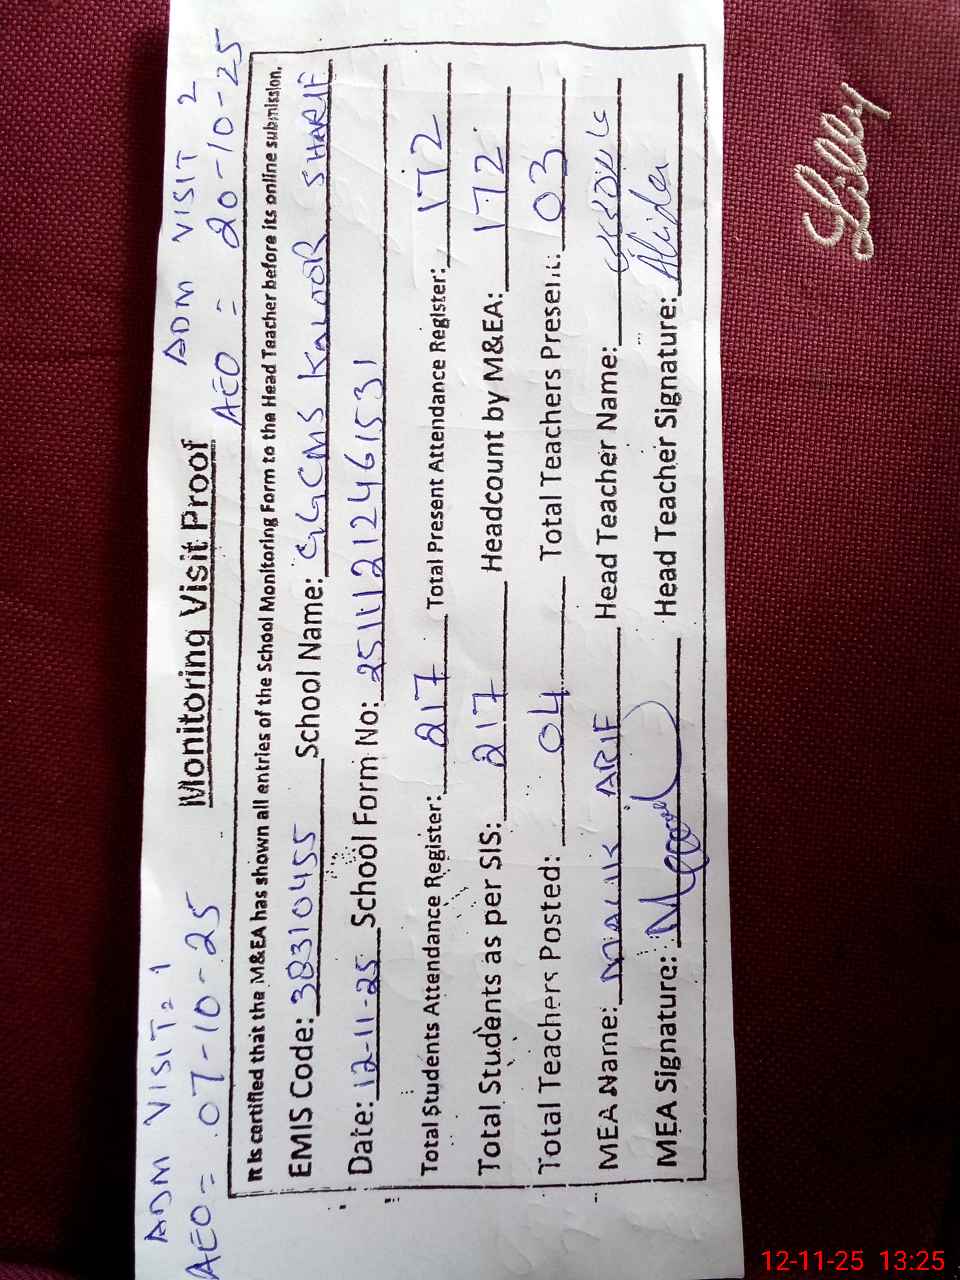 ADM VISIT: 1 ADM VISIT 2
AEO = 07-10-25 AEO = 20-10-25
Monitoring Visit Proof
It is certified that the M&EA has shown all entries of the School Monitoring Form to the Head Teacher before its online submission.
EMIS Code: 38310455 School Name: GGCMS KALOOR SHARIF
Date: 12-11-25 School Form No: 25111212461531
Total Students Attendance Register: 217 Total Present Attendance Register: 172
Total Students as per SIS: 217 Headcount by M&EA: 172
Total Teachers Posted: 04 Total Teachers Present: 03
MEA Name: MALIK ARIF Head Teacher Name:
MEA Signature: Head Teacher Signature:
Lilly
12-11-25 13:25